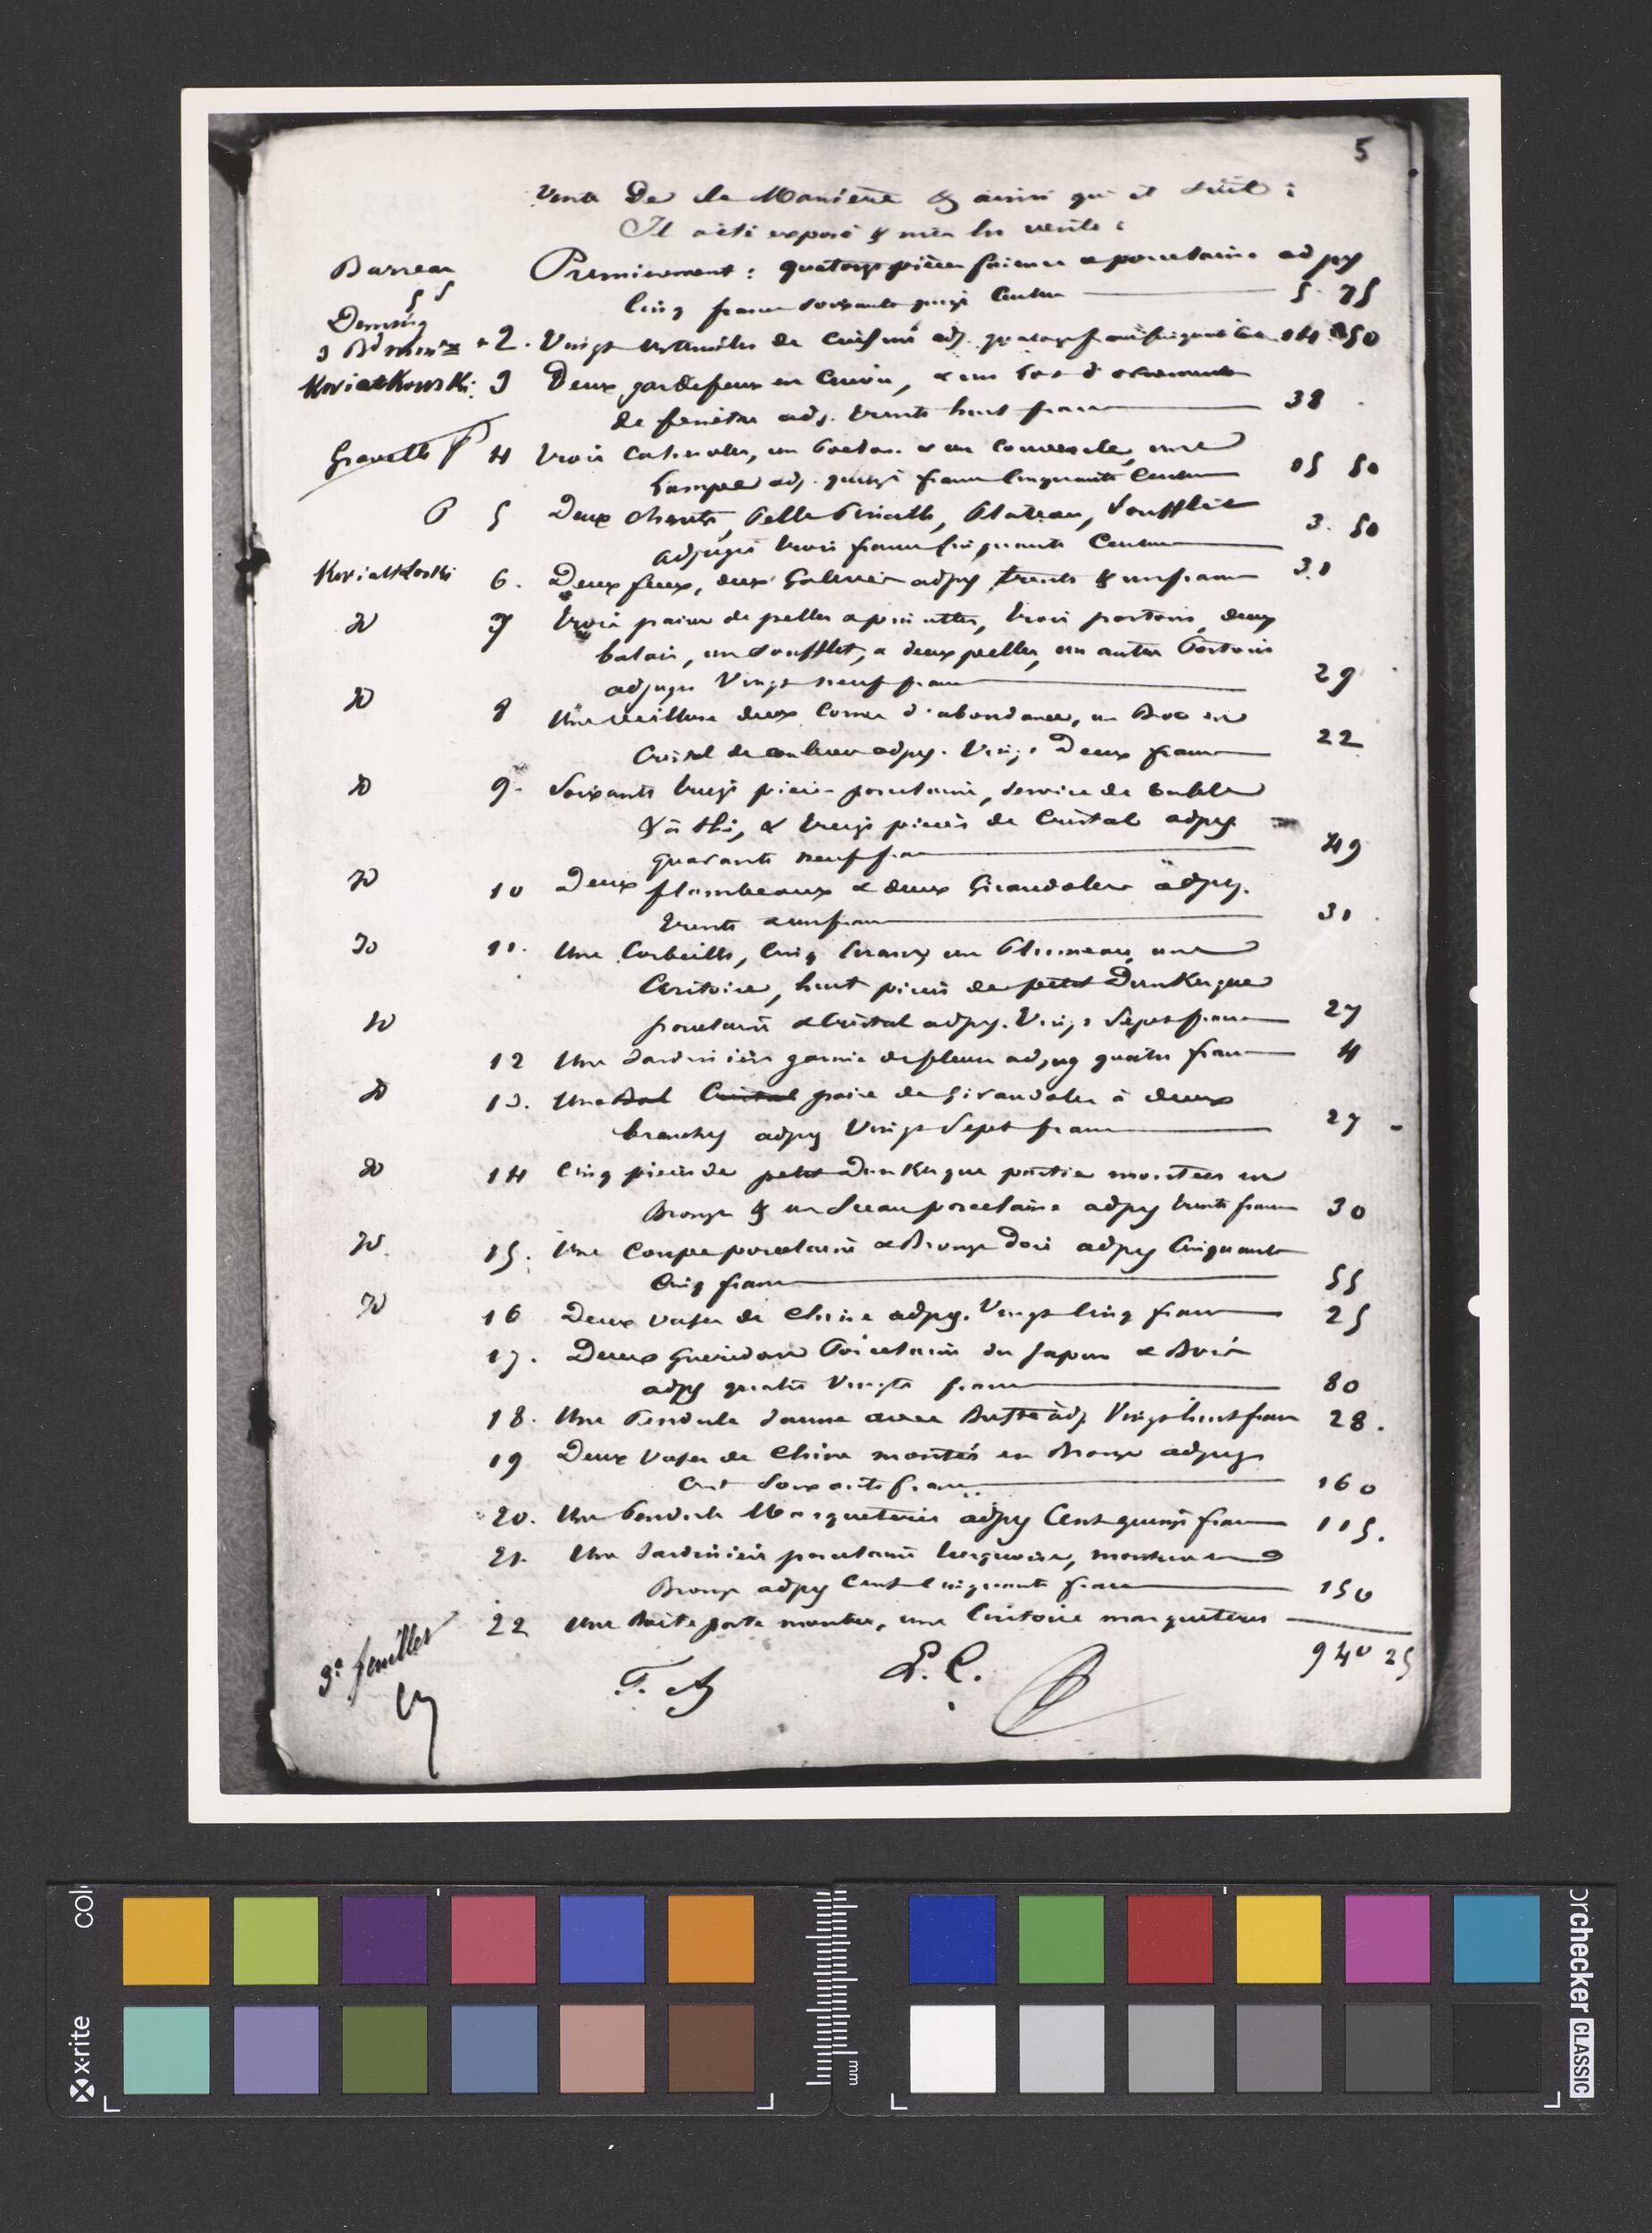 5
Vente De la Manière & ainsi qu'il suit :
Il a été exposé & mis en vente :
Barreau Premièrement : quatorze pièces faience & porcelaine adjug
Cinq francs soixante quinze Centes 5 75
55
2. Vingt ustensiles de Cuisine adj. quatorze francs cinquante Ces 14 50
Kwiatkowski. 3 Deux gardefeux en Cuivre, & un lot d'ornements
de fenêtre adj. trente huit francs 38
4 trois Casseroles, un & un couvercle, une
Lampe adj. quinze francs Cinquante Centes 15 50
5 Deux chenets, Pelle Pincette, Plateau, Soufflet
adjugés trois francs Cinquante Centes 3. 50
Kwiatkoski 6. Deux feux, deux Galeries adjug trente & un francs 31
do 7 trois paires de pelles & pincettes, trois portoirs, deux
balais, un Soufflet, & deux pelles, un autre Portoir
adjugés Vingt neuf francs 29
do 8 Une veilleuse deux Cornes d'abondance, un Broc en
Cristal de couleur adjug. Vingt Deux francs 22
do 9. Soixante treize pièces porcelaine, service de table
& à thé, & treize pièces de Cristal adjug
quarante neuf francs 49
do 10 Deux flambeaux & deux Girandoles adjug.
trente & un francs 31
do 11. Une Corbeille, Cinq un Plumeau, une
Ecritoire, huit pièces de petit Dunkerque
do porcelaine & Cristal adjug. Vingt Sept francs 27
12 Une Jardinière garnie de fleurs adjug quatre francs 4
do 13. Une paire de Girandoles à deux
branches adjug Vingt Sept francs 27
do 14 Cinq pièces de petit Dunkerque partie montées en
Bronze & un Seau porcelaine adjug trente francs 30
do 15. Une Coupe porcelaine & Bronze doré adjug Cinquante
Cinq francs 55
do 16 Deux vases de Chine adjug. Vingt Cinq francs 25
17. Deux Guéridons Porcelaine du Japon & Bois
adjug quatre Vingts francs 80
18. Une Pendule Jaune avec Buste adj Vingt huit francs 28.
19 Deux Vases de Chine montés en Bronze adjug
Cent Soixante francs 160
20. Une Pendule Marqueterie adjug Cent quinze francs 115.
21. Une Jardinière porcelaine turquoise, monture en
Bronze adjug Cent Cinquante francs 150
22 Une Boite porte montre, une Ecritoire marqueterie
940 25
3e feuillet
E. C.
colorchecker CLASSIC
x-rite
mm